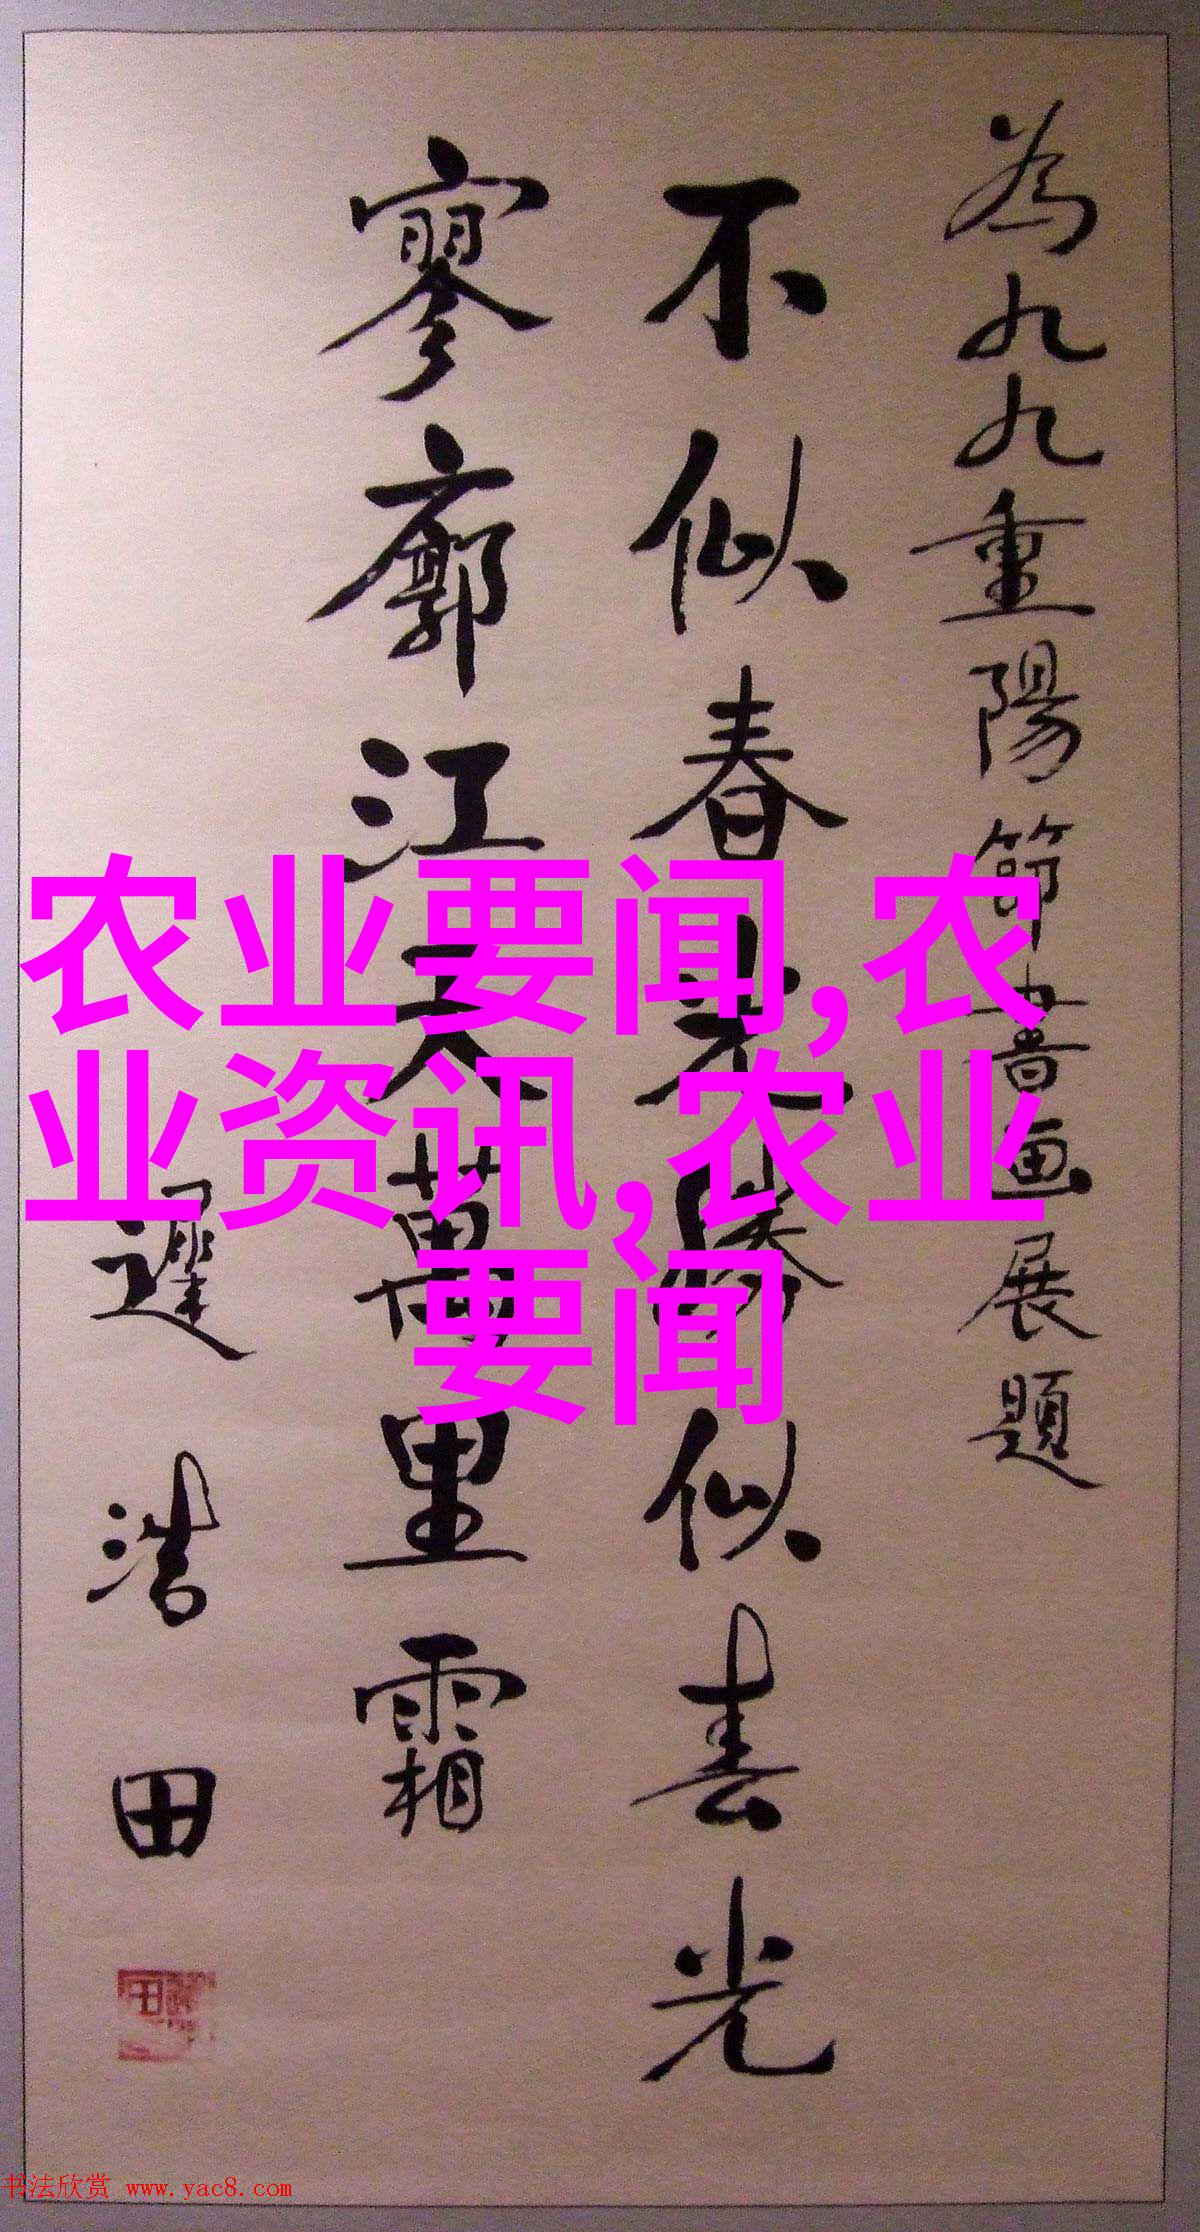 為九九重陽節書画展題
不似春光勝似春光
寥廓江天萬里霜
遲浩田
农业要闻,农
业资讯,农业
要闻
书法欣赏 www.yac8.com